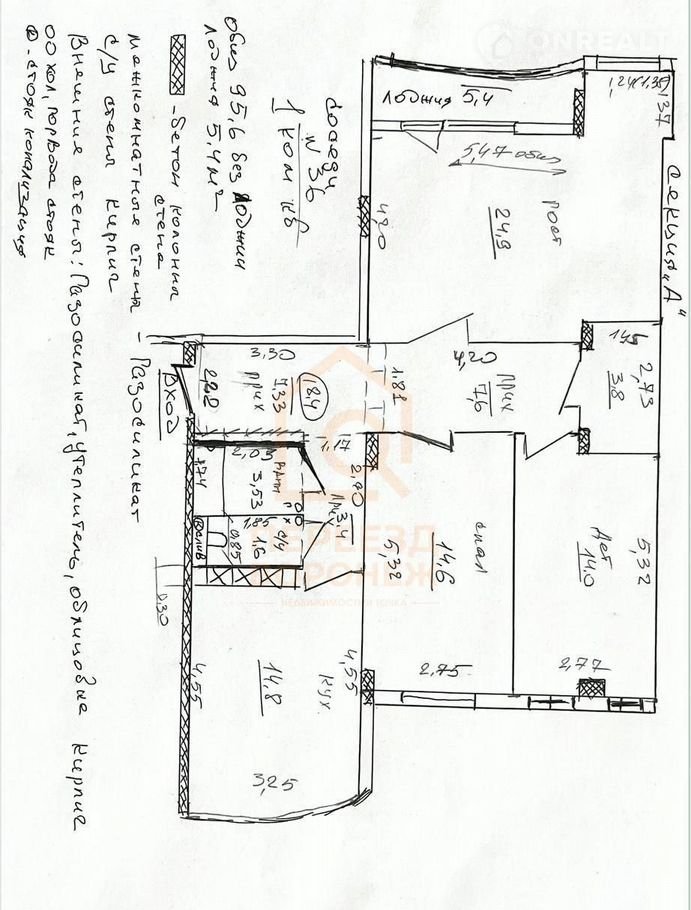 ONREALT
общ 95,6 без лоджии
лоджия 5,4 м²
соседи
№ 36
1 ком кв
- бетон колонны
стена
межкомнатные стены - Газосиликат
с/у стены кирпич
Внешние стены: Газосиликат, утеплитель, облицовка кирпич
ОО хол, гор вода стояк
⊗ - стояк канализация
Вход
Секция „А"
лоджия 5,4
1,24(1,35)
1,37
5,47 общ
4,20
24,9
гост
1,45
2,73
3,8
3,30
2,22
7,33
прих
18,4
1,81
4,20
прих
7,6
1,17
2,70
2,03
1,74
3,53
ванн
г
х
1,85
0,85
1,6
с/у
слив
при
3,4
5,32
14,6
спал
2,75
5,32
Дет
14,0
2,77
0,30
4,55
14,8
кух
4,55
3,25
ПЕРЕЕЗД
ВОРОНЕЖ